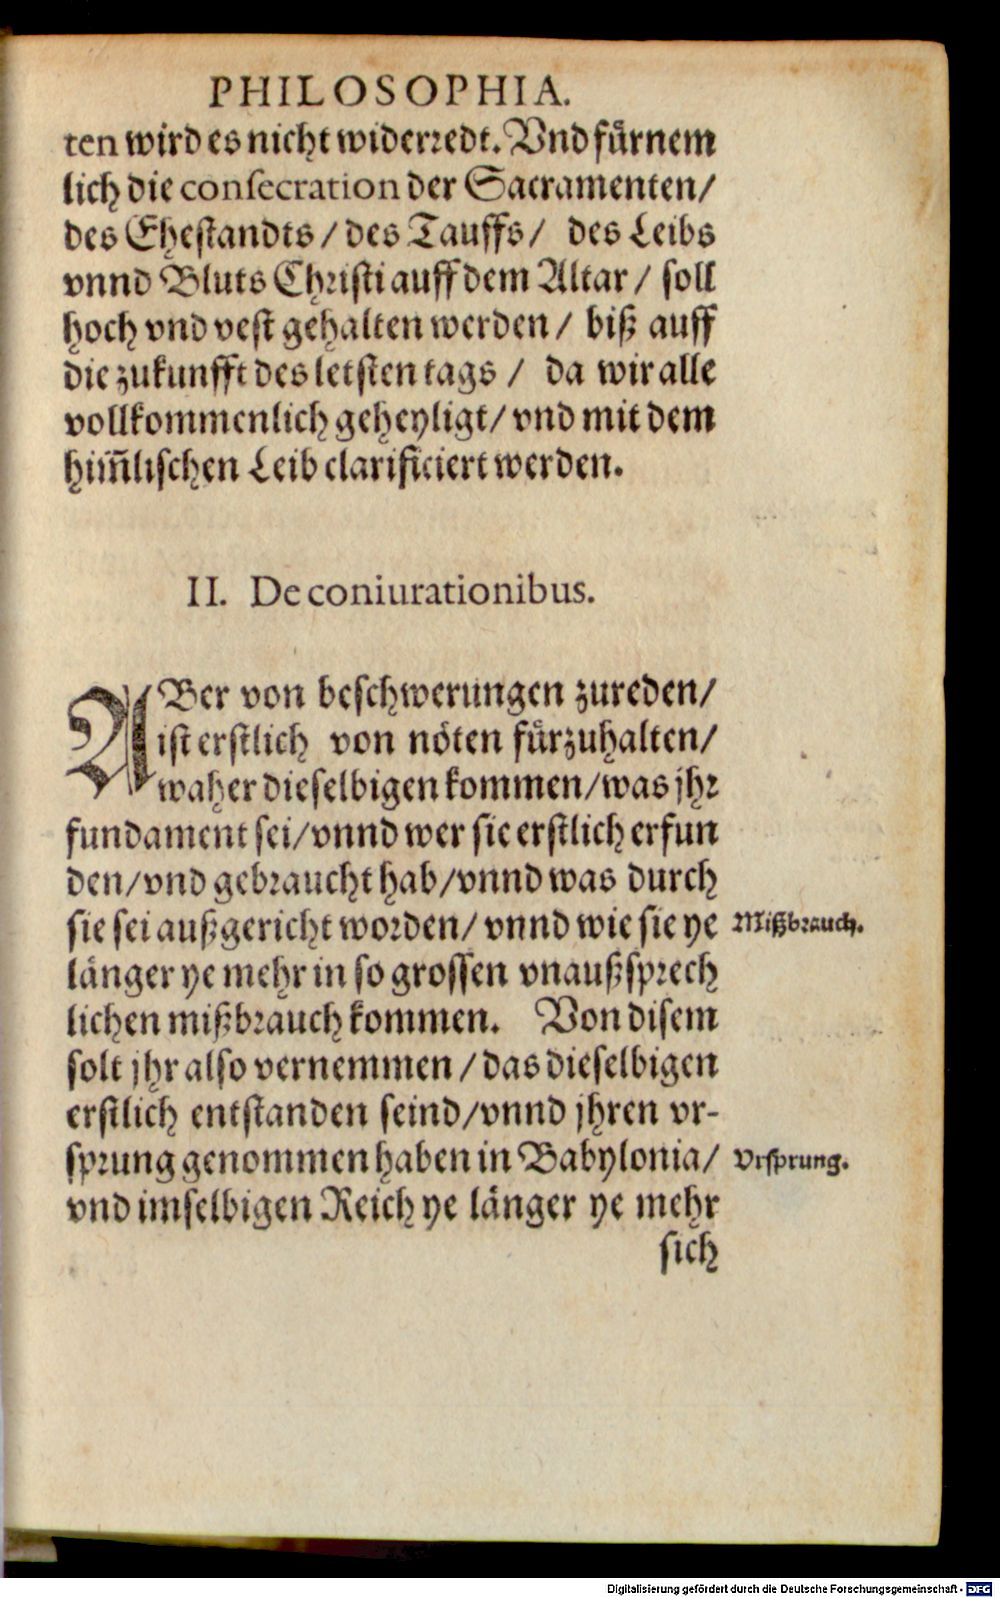 PHILOSOPHIA.
ten wird es nicht widerredt. Vnd fürnem
lich die consecration der Sacramenten/
des Ehestandts / des Tauffs / des Leibs
vnnd Bluts Christi auff dem Altar / soll
hoch vnd vest gehalten werden / biß auff
die zukunfft des letsten tags / da wir alle
vollkommenlich geheyligt/ vnd mit dem
him̃lischen Leib clarificiert werden.
II. De coniurationibus.
ABer von beschwerungen zureden/
ist erstlich von nöten fürzuhalten/
waher dieselbigen kommen/was jhr
fundament sei/vnnd wer sie erstlich erfun
den/vnd gebraucht hab/vnnd was durch
sie sei außgericht worden/ vnnd wie sie ye
Mißbrauch.
länger ye mehr in so grossen vnaußsprech
lichen mißbrauch kommen. Von disem
solt jhr also vernemmen / das dieselbigen
erstlich entstanden seind/vnnd jhren vr-
sprung genommen haben in Babylonia/
Vrsprung.
vnd imselbigen Reich ye länger ye mehr
sich
Digitalisierung gefördert durch die Deutsche Forschungsgemeinschaft - DFG